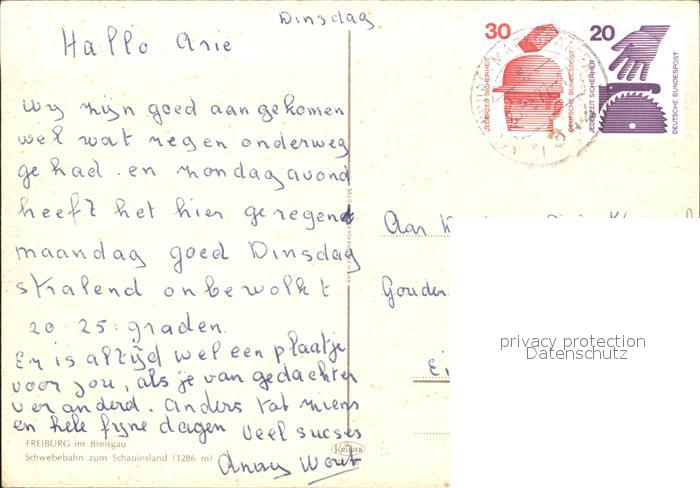 Dinsdag
Hallo Arie
Wy zijn goed aangekomen
wel wat regen onderweg
gehad. en zondag avond
heeft het hier geregend
maandag goed Dinsdag
stralend onbewolkt
20 25 graden.
Er is altijd wel een plaatje
voor jou, als je van gedachten
veranderd. Anders tot ziens
en hele fyne dagen veel sucses
Wout
FREIBURG im Breisgau
Schwebebahn zum Schauinsland (1286 m)
KRÜGER
30
JEDERZEIT SICHERHEIT
DEUTSCHE BUNDESPOST
20
JEDERZEIT SICHERHEIT
DEUTSCHE BUNDESPOST
Aan
Gouden
Ei
privacy protection
Datenschutz